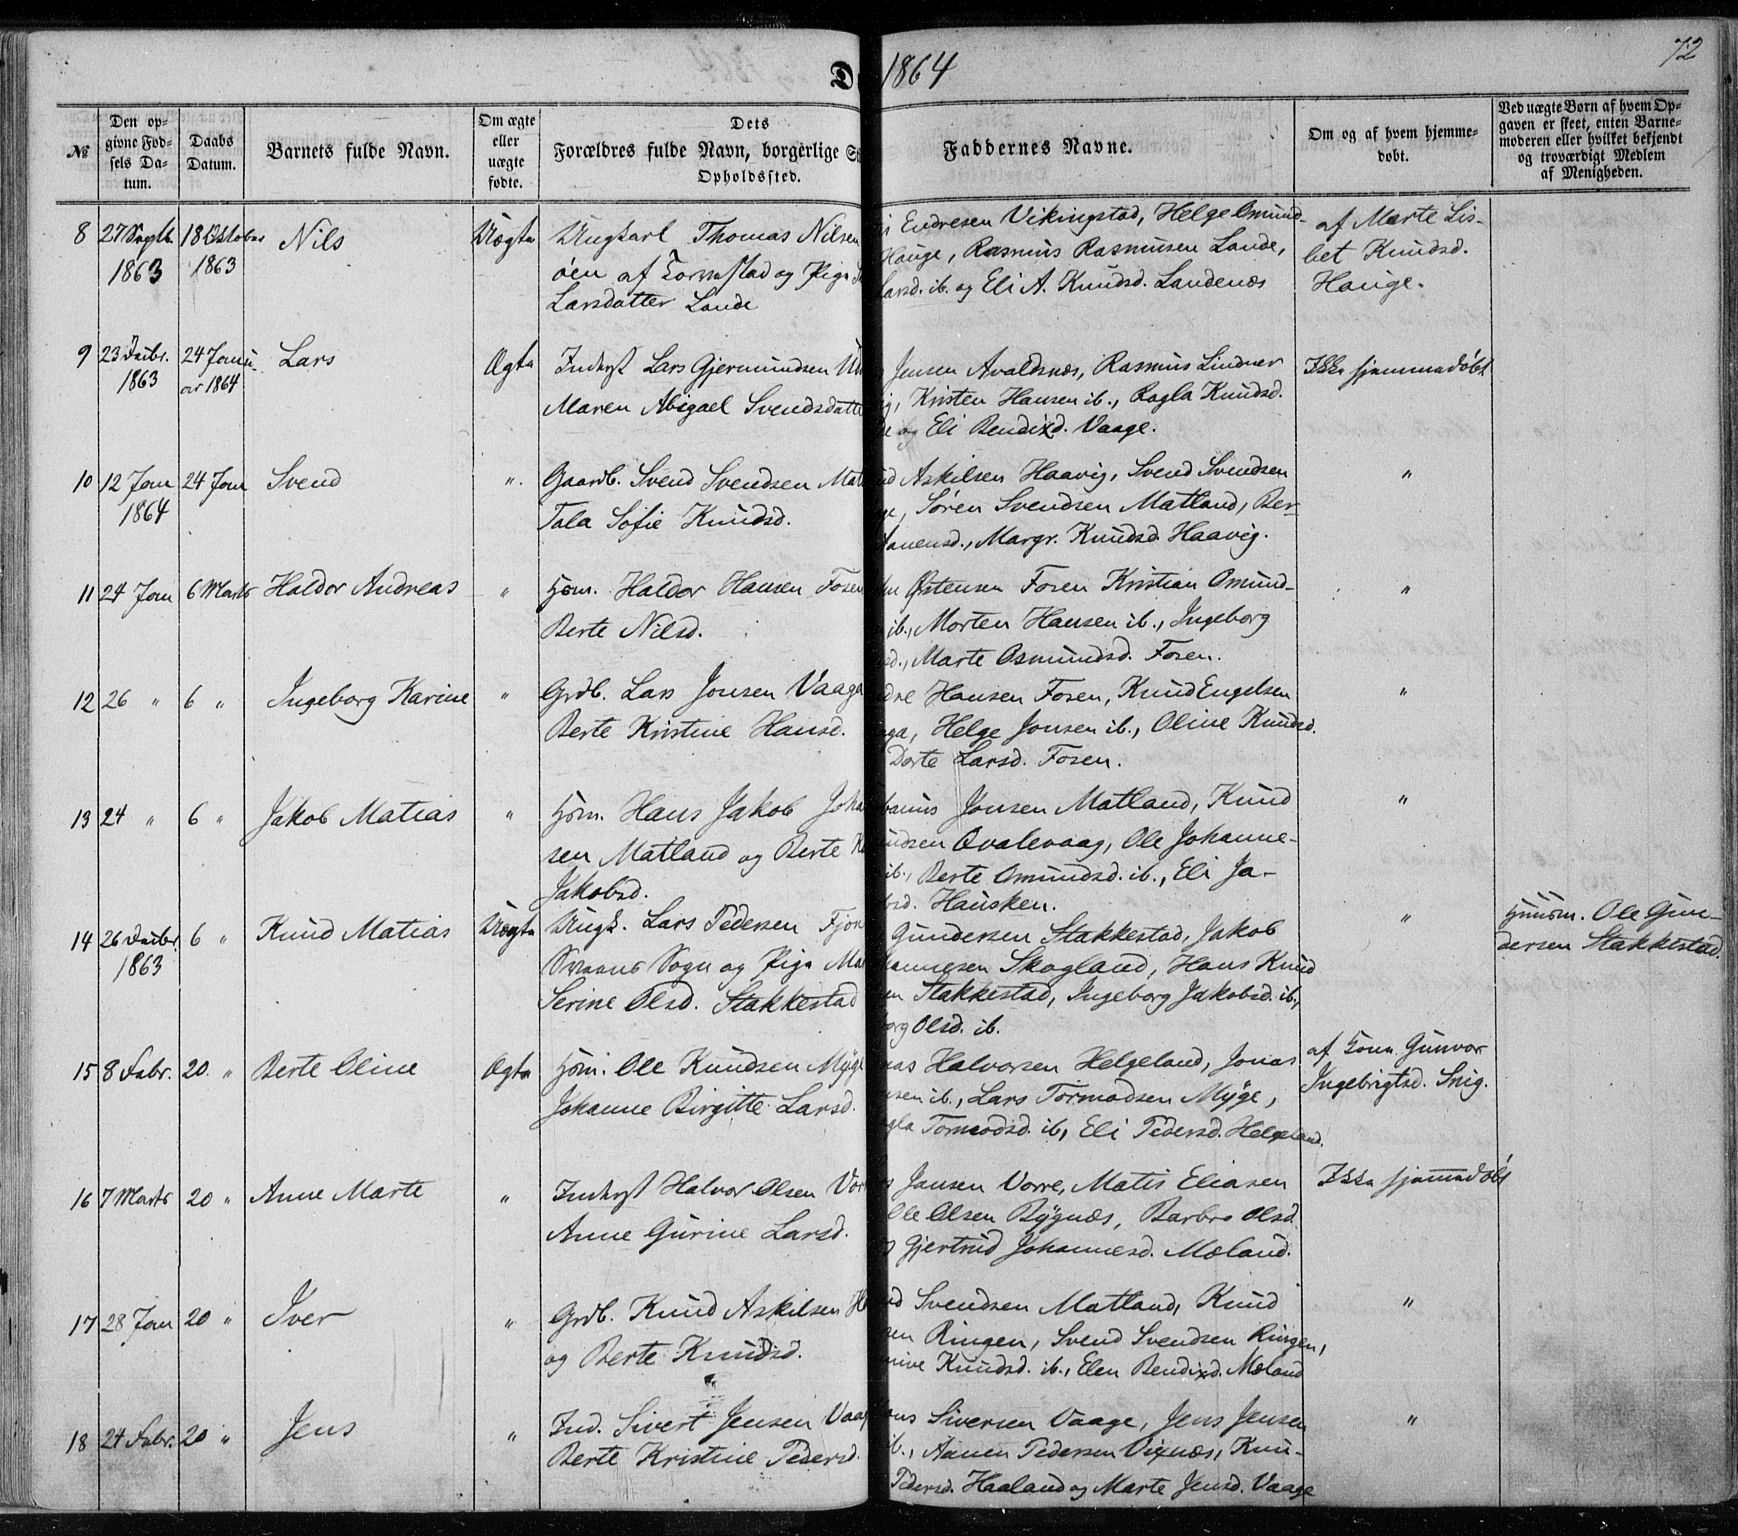 1864
72
№
Den op-
givne Fød-
sels Da-
tum.
Daabs
Datum.
Barnets fulde Navn.
Om ægte
eller
uægte
fødte.
Dets
Forældres fulde Navn, borgerlige
Opholdssted.
Faddernes Navne.
Om og af hvem hjemme-
døbt.
Ved uægte Børn af hvem Op-
gaven er skeet, enten Barne-
moderen eller hvilket bekjendt
og troværdigt Medlem
af Menigheden.
8 27 Septb. 1863 18 Oktober 1863 Nils Uægte
Ungkarl Thomas Nilsen
öen af Torvestad og Pige
Larsdatter Lande
Endresen Vikingstad, Helge Omund-
Hauge, Rasmus Rasmusen Lande,
Larsd. ib. og Eli A. Knudsd. Landenæs
af Marte Lis-
bet Knudsd.
Hauge.
9 23 Decbr. 1863 24 Janu-
ar 1864 Lars Ægte
Inderst Lars Gjermundsen
Maren Abigael Svendsdatte
Jensen Avaldsnæs, Rasmus Lindner
Kristen Hansen ib., Ragla Knudsd.
og Eli Bendixd. Vaage.
Ikke hjemmedøbt
10 12 Jan 1864 24 Jan Svend ".
Gaardb. Svend Svendsen Mat
Tala Sofie Knudsd.
Askilsen Haavig, Svend Svendsen
Søren Svendsen Matland, Ber-
Hansensd., Margr. Knudsd. Haavig.
"
11 24 Jan 6 Marts Haldor Andreas "
Hsm. Haldor Hansen Fosen
Berte Nilsd.
Østensen Fosen Kristian Omund-
ib., Morten Hansen ib., Ingeborg
sd., Marte Osmundsd. Fosen.
"
12 26 " 6 " Ingeborg Karine "
Grdb. Lars Jonsen Vaaga
Berte Kristine Hansd.
Hansen Fosen, Knud Engelsen
aga, Helge Jonsen ib., Oline Knudsd.
Dorte Larsd. Fosen.
"
13 24 " 6 " Jakob Matias "
Hsm. Hans Jakob Joha
sen Matland og Berte
Jakobsd.
Jonsen Matland, Knud
undsen Qvalevaag, Ole Johanne-
ib., Berte Omundsd. ib., Eli Ja-
Hausken.
"
14 26 Decbr. 1863 6 " Knud Matias Uægte
Ungk. Lars Pedersen Fjon
Sveens Sogn og Pige Mar
Serine Olsd. Stakkestad
Gundersen Stakkestad, Jakob
annesen Skogland, Hans Knud
en Stakkestad, Ingeborg Jakobsd. ib.,
borg Olsd. ib.
"
Huusm. Ole Gun-
dersen Stakkestad.
15 8 Febr. 20 " Berte Oline Ægte
Hsm. Ole Knudsen Myge
Johanne Birgitte Larsd.
Halvorsen Helgeland, Jonas
sen ib., Lars Tormodsen Myge,
Tormodsd. ib., Eli Pedersd. Helgeland.
af Kona Gunvor
Ingebrigtsd. Snig.
16 7 Marts 20 " Anne Marte "
Inderst Halvor Olsen Vor
Anne Gurine Larsd.
Jansen Vorre, Matis Eliasen
Ole Olsen Bygnæs, Barbro Olsd.
Gjertrud Johannesd. Mæland.
Ikke hjemmedøbt
17 28 Jan 20 " Iver "
Grdb. Knud Askilsen H
og Berte Knudsd.
Svendsen Matland, Knud
sen Ringen, Svend Svendsen Ringen,
Knudsd. ib., Elen Bendixd. Mæland
"
18 24 Febr. 20 " Jens "
Ind. Sivert Jensen Vaag
Berte Kristine Pedersd.
Siversen Vaage, Jens Jensen
ib., Aanen Pedersen Vignæs, Knu-
Pedersd. Haaland og Marte Jensd. Vaage
"